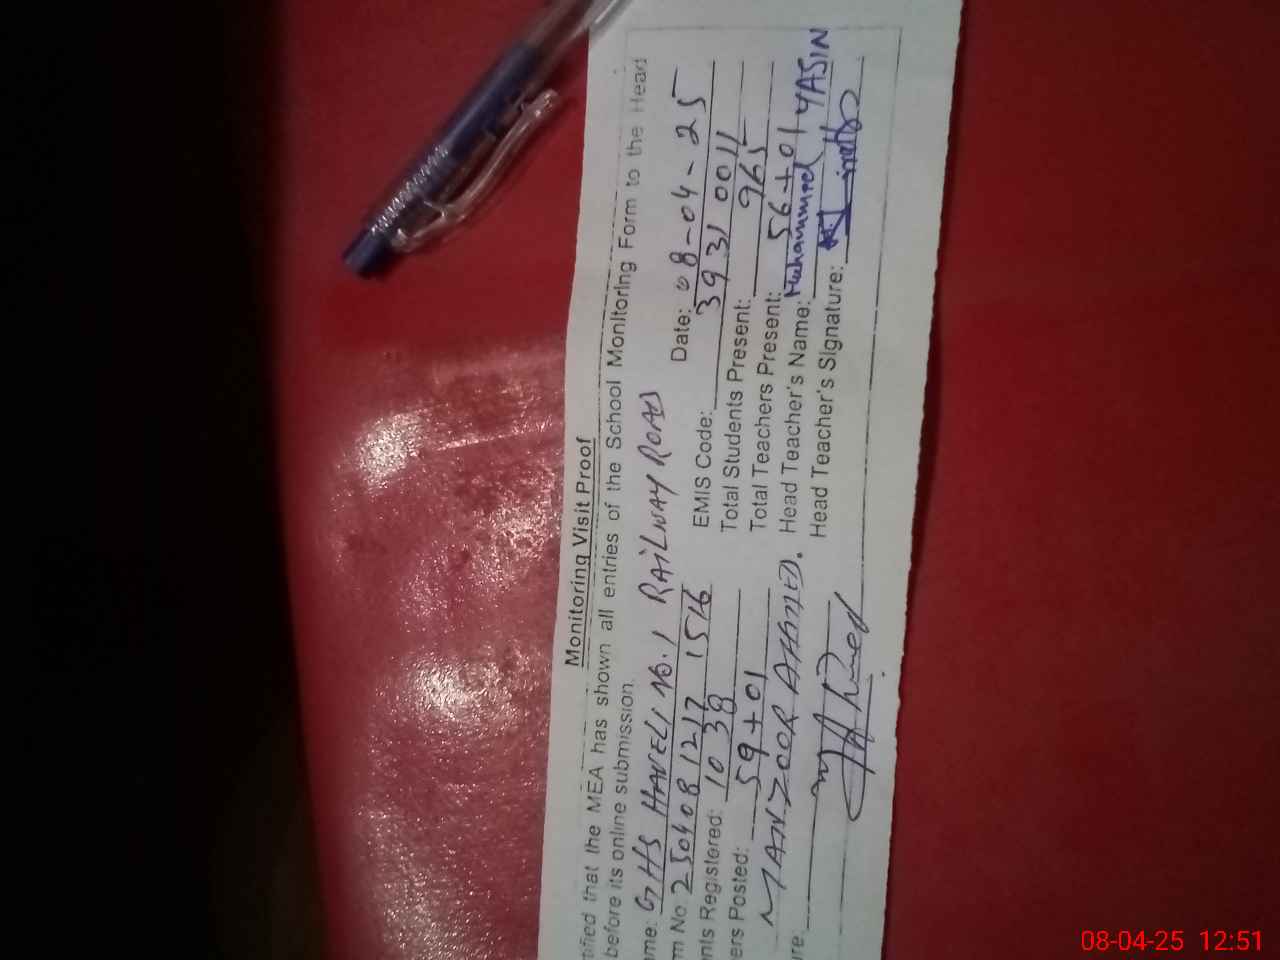 Monitoring Visit Proof
tified that the MEA has shown all entries of the School Monitoring Form to the Head
before its online submission.
me: GHS HAVELI NO. 1 RAILWAY ROAD Date: 08-04-25
m No 250408 1217 1516 EMIS Code: 3931 0011
nts Registered: 1038 Total Students Present: 965
ers Posted: 59+01 Total Teachers Present: 56+01
MANZOOR AHMED. Head Teacher's Name: Muhammad YASIN
re: Head Teacher's Signature:
08-04-25 12:51